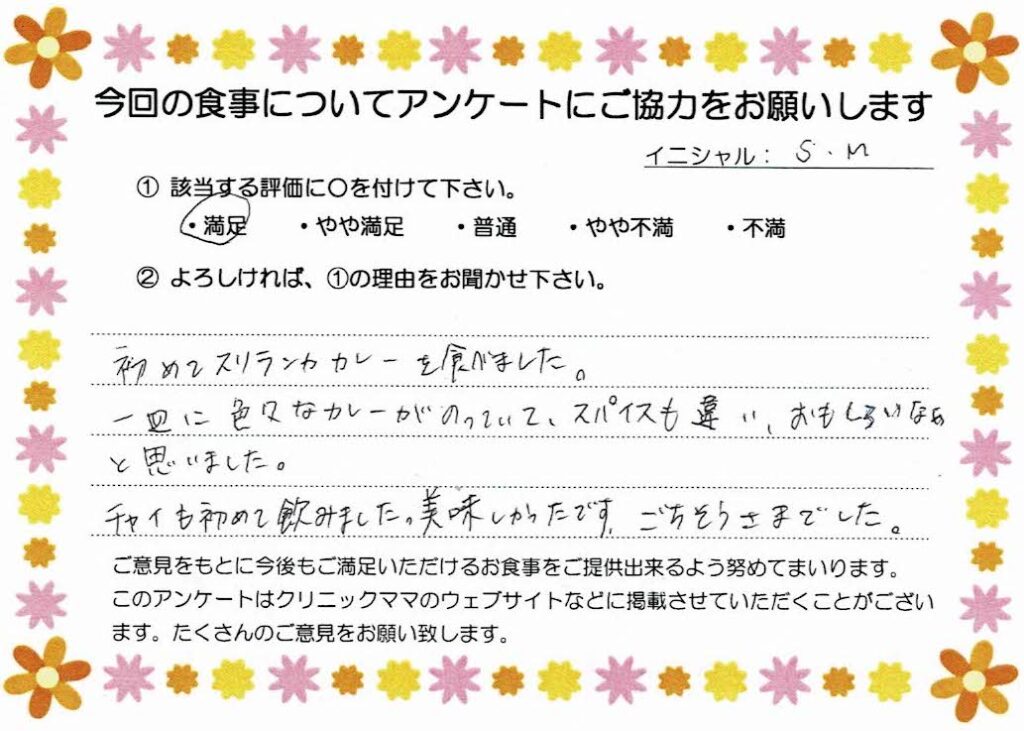 今回の食事についてアンケートにご協力をお願いします
イニシャル： S.M
① 該当する評価に〇を付けて下さい。
・満足 ・やや満足 ・普通 ・やや不満 ・不満
② よろしければ、①の理由をお聞かせ下さい。
初めてスリランカカレーを食べました。
一皿に色々なカレーがのっていて、スパイスも違い、おもしろいなぁ
と思いました。
チャイも初めて飲みました。美味しかったです。ごちそうさまでした。
ご意見をもとに今後もご満足いただけるお食事をご提供出来るよう努めてまいります。
このアンケートはクリニックママのウェブサイトなどに掲載させていただくことがござい
ます。たくさんのご意見をお願い致します。